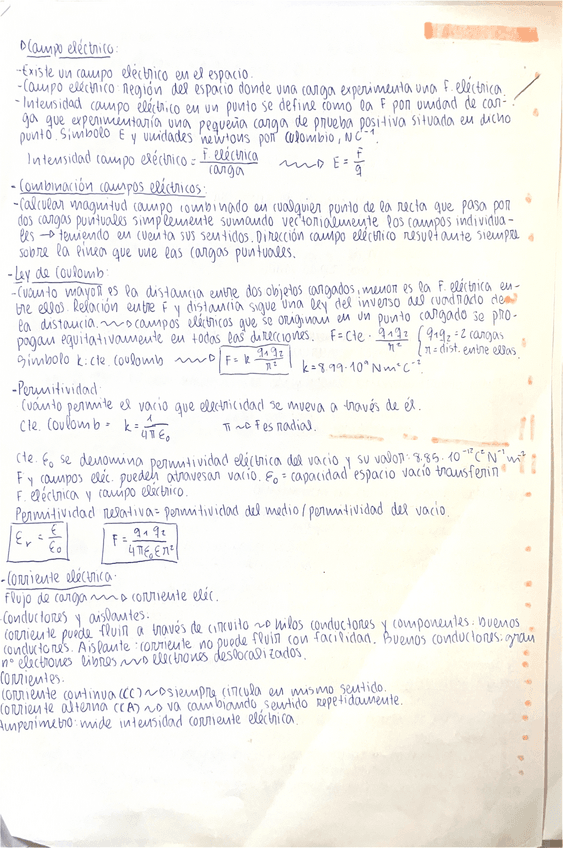 Campo eléctrico:
-Existe un campo eléctrico en el espacio.
-Campo eléctrico: región del espacio donde una carga experimenta una F. eléctrica.
-Intensidad campo eléctrico en un punto se define como la F por unidad de car-
ga que experimentaría una pequeña carga de prueba positiva situada en dicho
punto. Símbolo E y unidades newtons por culombio, NC⁻¹.
Intensidad campo eléctrico = F eléctrica / carga ~~> E = F/q
-Combinación campos eléctricos:
-Calcular magnitud campo combinado en cualquier punto de la recta que pasa por
dos cargas puntuales simplemente sumando vectorialmente los campos individua-
les → teniendo en cuenta sus sentidos. Dirección campo eléctrico resultante siempre
sobre la línea que une las cargas puntuales.
-Ley de Coulomb:
-Cuanto mayor es la distancia entre dos objetos cargados, menor es la F. eléctrica en-
tre ellos. Relación entre F y distancia sigue una ley del inverso del cuadrado de
la distancia. ~~> campos eléctricos que se originan en un punto cargado se pro-
pagan equitativamente en todas las direcciones. F = Cte · q₁q₂/r² { q₁q₂ = 2 cargas
r = dist. entre ellas.
Símbolo k: cte. coulomb ~~> F = k q₁q₂/r² k = 8.99·10⁹ Nm²C⁻²
-Permitividad:
Cuánto permite el vacío que electricidad se mueva a través de él.
Cte. Coulomb = k = 1/4πε₀ π ~> F es radial.
Cte. ε₀ se denomina permitividad eléctrica del vacío y su valor: 8.85·10⁻¹² C²N⁻¹m⁻²
F y campos eléc. pueden atravesar vacío. ε₀ = capacidad espacio vacío transferir
F. eléctrica y campo eléctrico.
Permitividad relativa = permitividad del medio / permitividad del vacío.
εᵣ = ε/ε₀ F = q₁q₂/4πε₀εr²
-Corriente eléctrica:
Flujo de carga ~~> corriente eléc.
Conductores y aislantes.
Corriente puede fluir a través de circuito ~> hilos conductores y componentes. Buenos
conductores. Aislante: corriente no puede fluir con facilidad. Buenos conductores: gran
nº electrones libres ~> electrones deslocalizados.
Corrientes.
Corriente continua (CC) ~> siempre circula en mismo sentido.
Corriente alterna (CA) ~> va cambiando sentido repetidamente.
Amperímetro: mide intensidad corriente eléctrica.